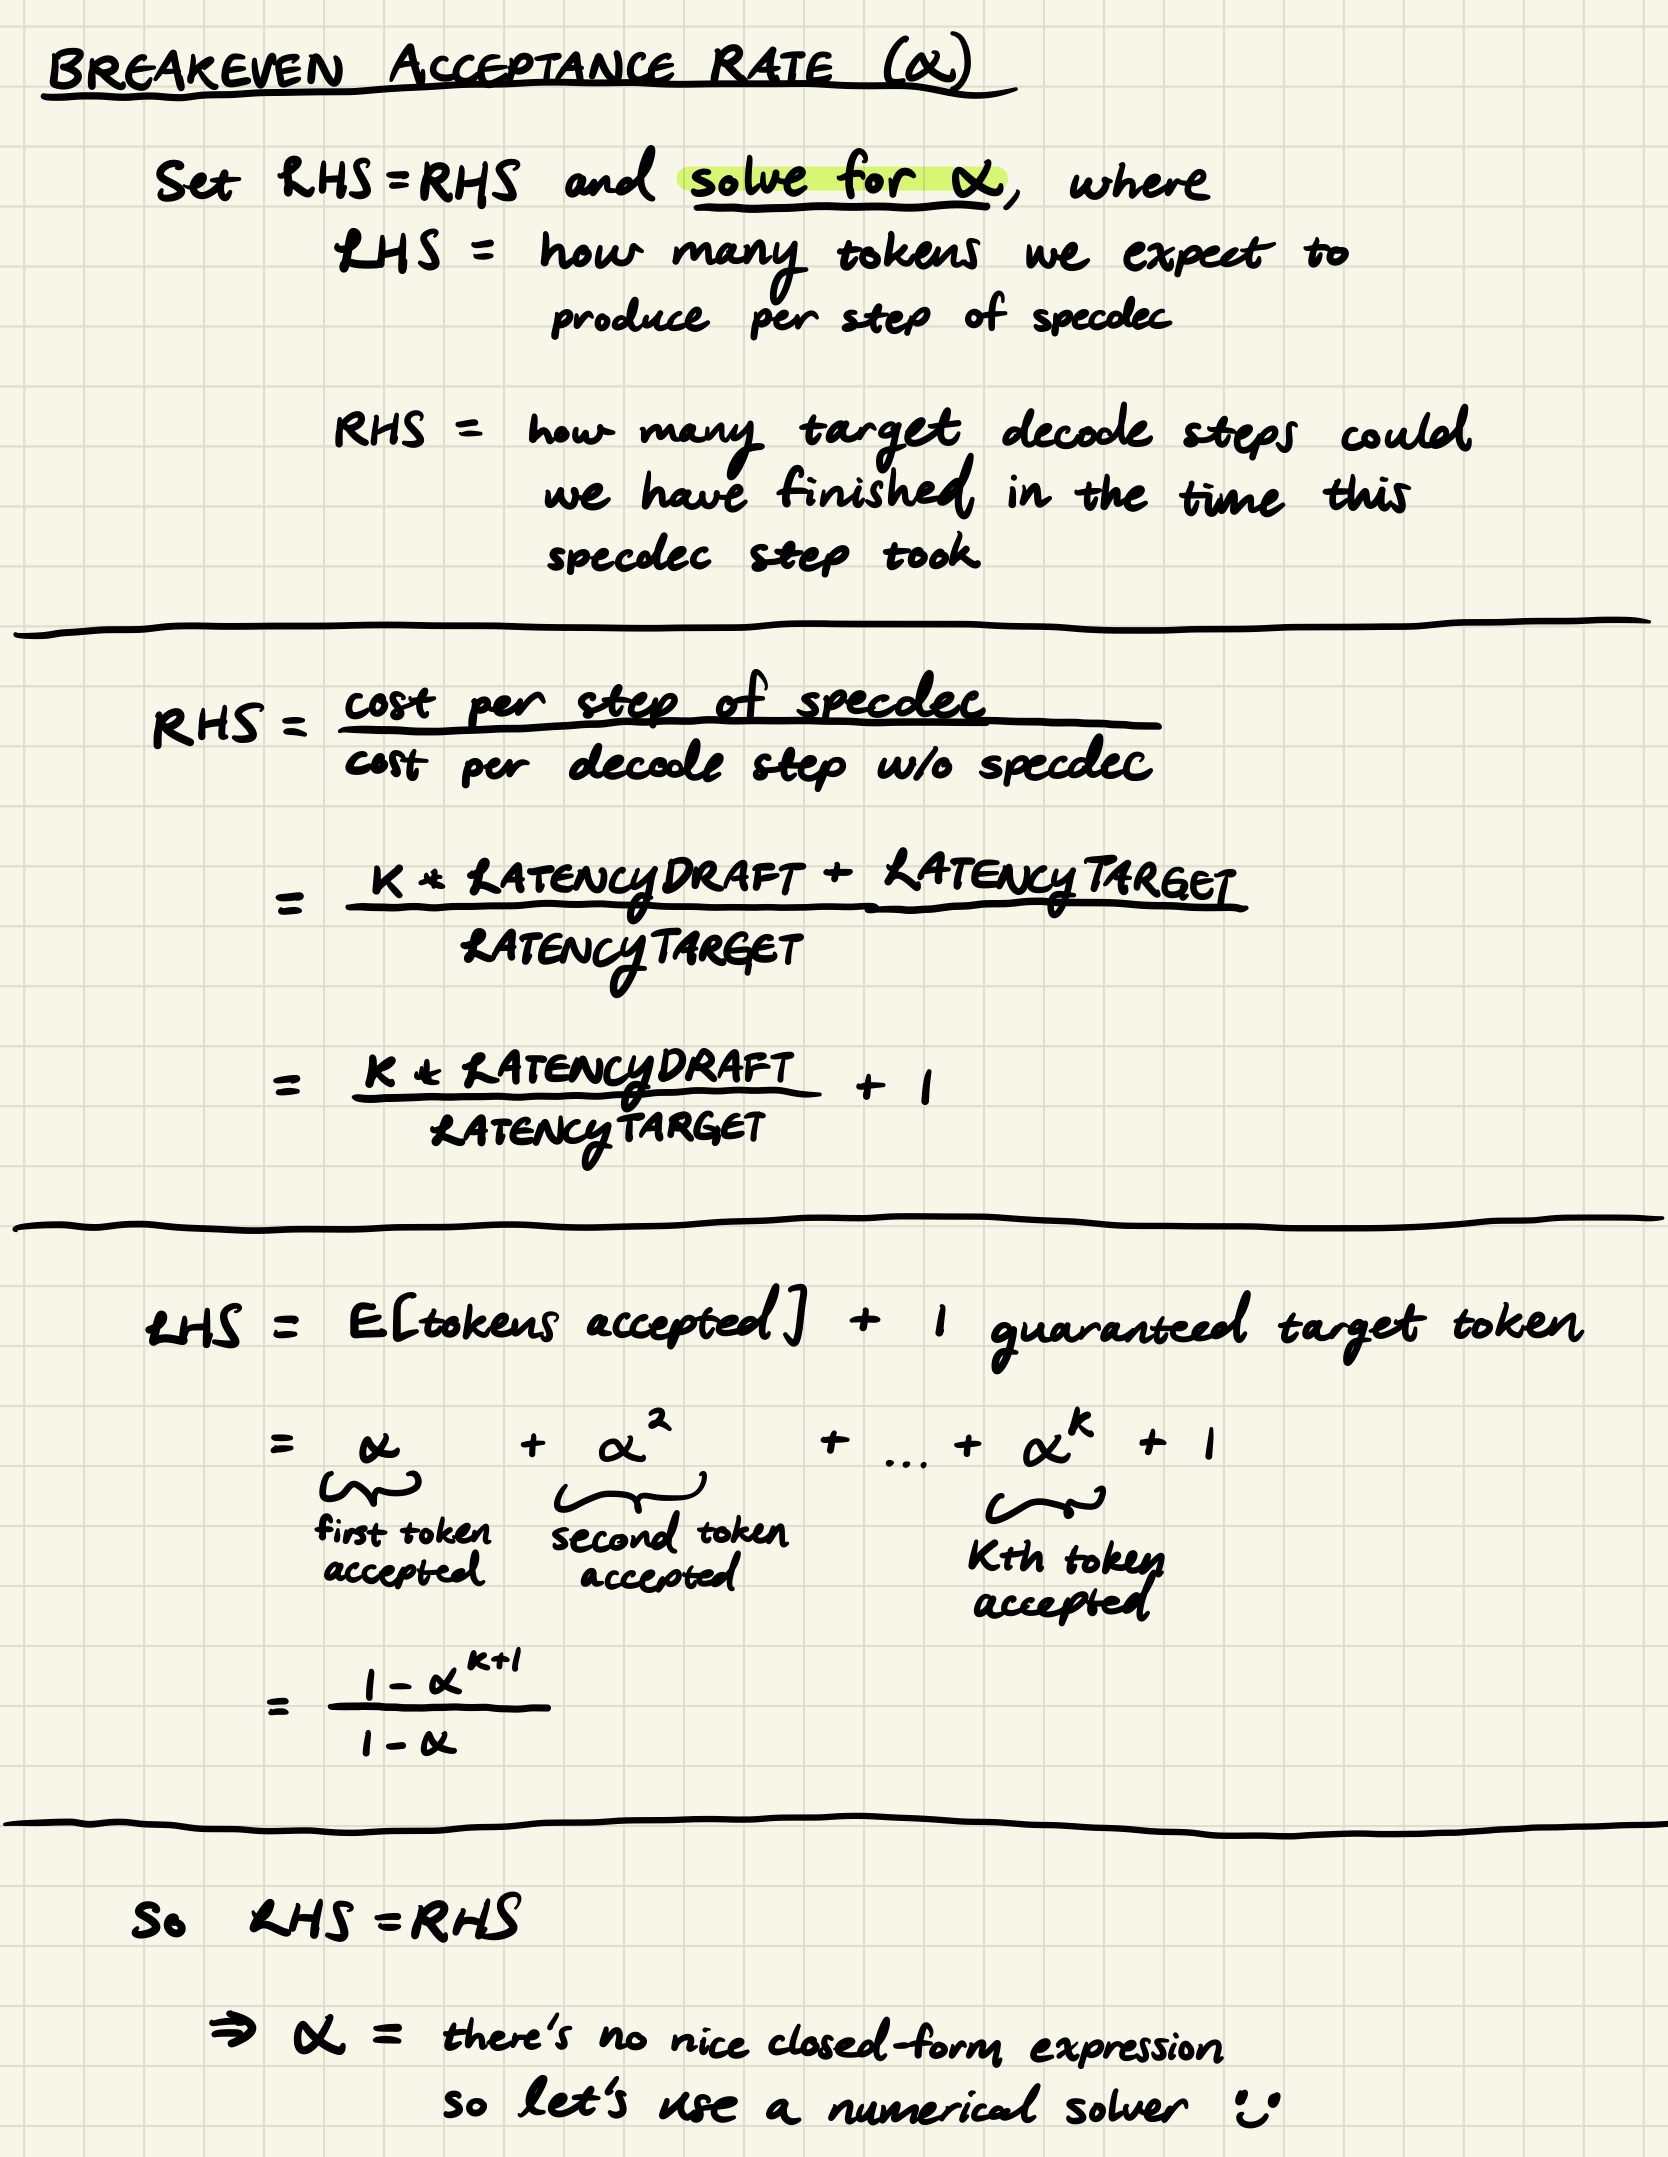 BREAKEVEN ACCEPTANCE RATE (α)
Set LHS = RHS and solve for α, where
LHS = how many tokens we expect to
produce per step of specdec
RHS = how many target decode steps could
we have finished in the time this
specdec step took
RHS = cost per step of specdec
cost per decode step w/o specdec
= K * LATENCYDRAFT + LATENCYTARGET
LATENCYTARGET
= K * LATENCYDRAFT + 1
LATENCYTARGET
LHS = E[tokens accepted] + 1 guaranteed target token
= α + α² + ... + α^K + 1
first token second token Kth token
accepted accepted accepted
= 1 - α^K+1
1 - α
So LHS = RHS
⇒ α = there's no nice closed-form expression
so let's use a numerical solver :)